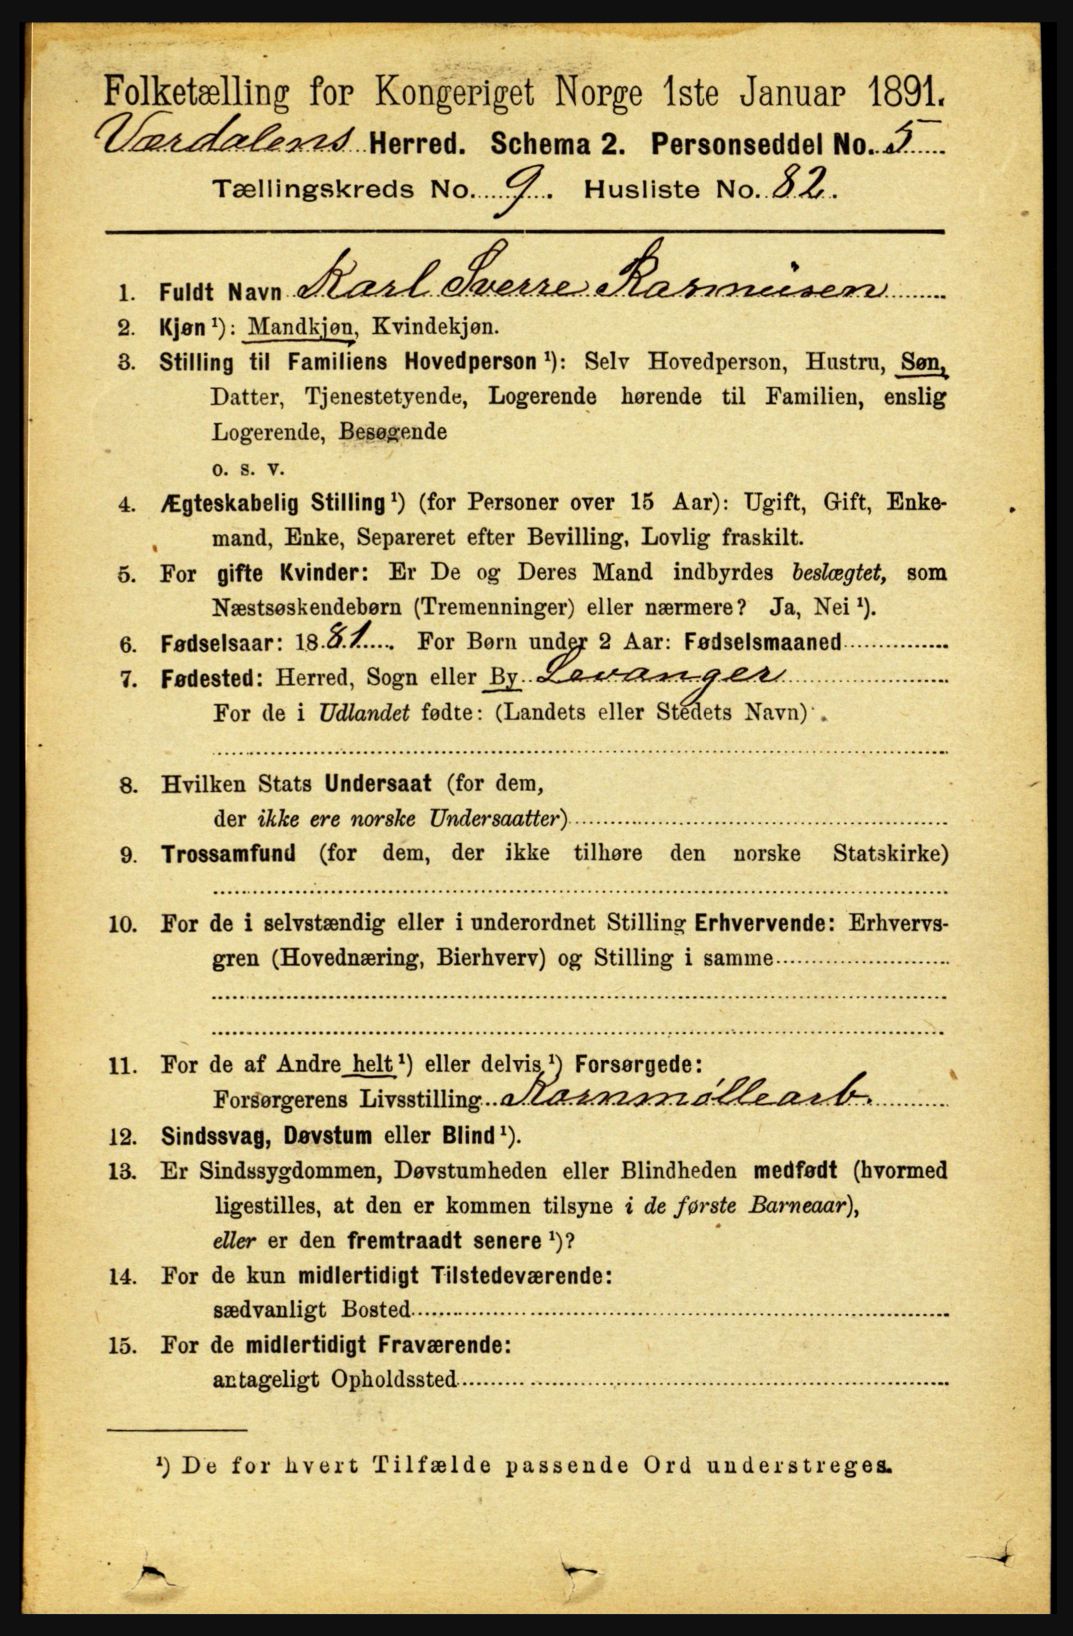 Folketælling for Kongeriget Norge 1ste Januar 1891.
Værdalens Herred. Schema 2. Personseddel No. 5
Tællingskreds No. 9. Husliste No. 82.
1. Fuldt Navn Karl Sverre Rasmusen
2. Kjøn ¹): Mandkjøn, Kvindekjøn.
3. Stilling til Familiens Hovedperson ¹): Selv Hovedperson, Hustru, Søn,
Datter, Tjenestetyende, Logerende hørende til Familien, enslig
Logerende, Besøgende
o. s. v.
4. Ægteskabelig Stilling ¹) (for Personer over 15 Aar): Ugift, Gift, Enke-
mand, Enke, Separeret efter Bevilling, Lovlig fraskilt.
5. For gifte Kvinder: Er De og Deres Mand indbyrdes beslægtet, som
Næstsøskendebørn (Tremenninger) eller nærmere? Ja, Nei ¹).
6. Fødselsaar: 1881. For Børn under 2 Aar: Fødselsmaaned
7. Fødested: Herred, Sogn eller By Levanger
For de i Udlandet fødte: (Landets eller Stedets Navn)
8. Hvilken Stats Undersaat (for dem,
der ikke ere norske Undersaatter)
9. Trossamfund (for dem, der ikke tilhøre den norske Statskirke)
10. For de i selvstændig eller i underordnet Stilling Erhvervende: Erhvervs-
gren (Hovednæring, Bierhverv) og Stilling i samme
11. For de af Andre helt ¹) eller delvis ¹) Forsørgede:
Forsørgerens Livsstilling Kornmøllearb.
12. Sindssvag, Døvstum eller Blind ¹).
13. Er Sindssygdommen, Døvstumheden eller Blindheden medfødt (hvormed
ligestilles, at den er kommen tilsyne i de første Barneaar),
eller er den fremtraadt senere ¹)?
14. For de kun midlertidigt Tilstedeværende:
sædvanligt Bosted
15. For de midlertidigt Fraværende:
antageligt Opholdssted
¹) De for hvert Tilfælde passende Ord understreges.